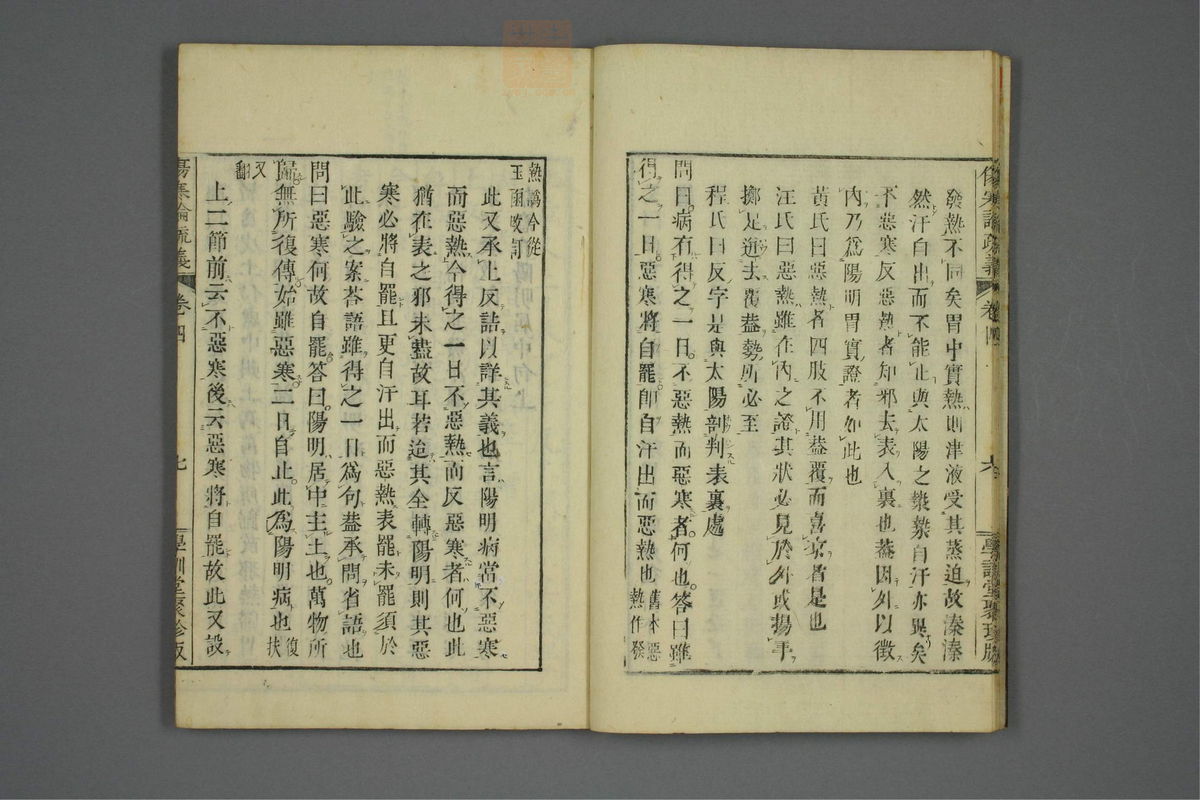 傷寒論疏義 卷四 六 學訓堂聚珍版
發熱不同矣胃中實熱則津液受其蒸迫故溱溱
然汗自出而不能止與太陽之漐漐自汗亦異矣
不惡寒反惡熱者知邪去表入裏也蓋因外以徵
內乃爲陽明胃實證者如此也
黃氏曰惡熱者四肢不用蓋覆而喜涼者是也
汪氏曰惡熱雖在內之證其狀必見於外或揚手
擲足迸去覆蓋勢所必至
程氏曰反字是與太陽剖判表裏處
問曰病有得之一日不惡熱而惡寒者何也答曰雖
得之一日惡寒將自罷卽自汗出而惡熱也舊本惡熱作發
熱譌今從玉函改訂
此又承上反詰以詳其義也言陽明病當不惡寒
而惡熱今得之一日不惡熱而反惡寒者何也此
猶在表之邪未盡故耳若迨其全轉陽明則其惡
寒必將自罷且更自汗出而惡熱表罷未罷須於
此驗之案荅語雖得之一日爲句蓋承問省語也
問曰惡寒何故自罷答曰陽明居中主土也萬物所
歸無所復傳始雖惡寒二日自止此爲陽明病也復扶
又翻
上二節前云不惡寒後云惡寒將自罷故此又設
傷寒論疏義 卷四 七 學訓堂聚珍版